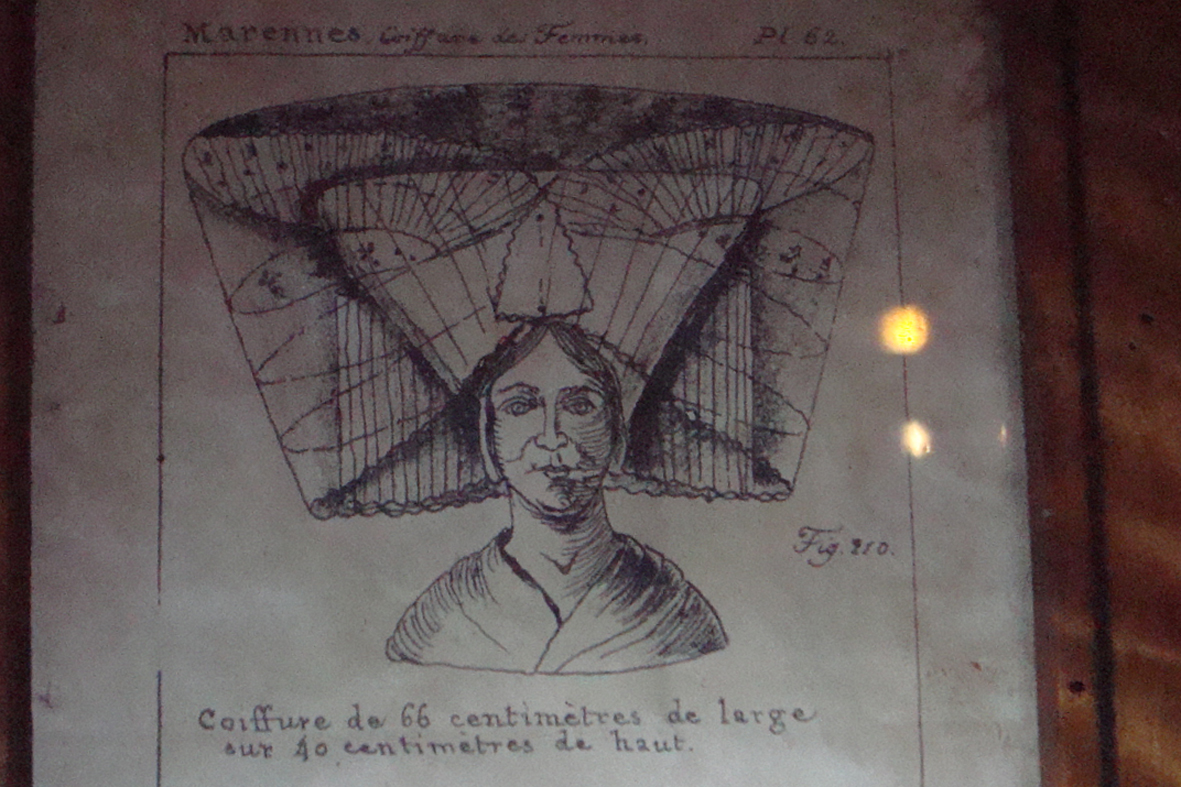 Marennes. Coiffure de Femmes. Pl. 62.
Fig. 210.
Coiffure de 66 centimètres de large
sur 40 centimètres de haut.